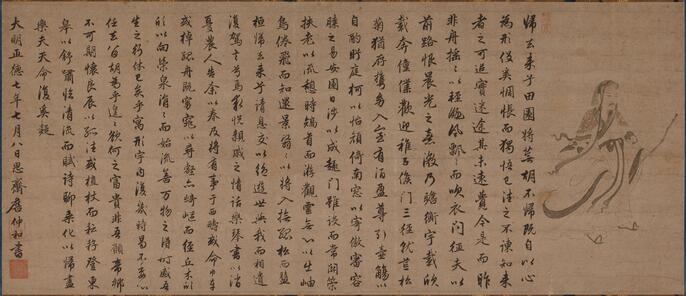 歸去來兮田園將蕪胡不歸既自以心
為形役奚惆悵而獨悟已往之不諫知來
者之可追實迷途其未遠覺今是而昨
非舟搖搖以輕颺風飄飄而吹衣問征夫以
前路恨晨光之熹微乃瞻衡宇載欣
載奔僮僕歡迎稚子候門三徑就荒松
菊猶存攜幼入室有酒盈尊引壺觴以
自酌眄庭柯以怡顏倚南窗以寄傲審容
膝之易安園日涉以成趣門雖設而常關策
扶老以流憩時矯首而遐觀雲無心以出岫
鳥倦飛而知還景翳翳以將入撫孤松而盤
桓歸去來兮請息交以絕遊世與我而相遺
復駕言兮焉求悅親戚之情話樂琴書以消
憂農人告余以春及將有事于西疇或命巾車
或棹孤舟既窈窕以尋壑亦崎嶇而經丘木欣
欣以向榮泉涓涓而始流善萬物之得時感吾
生之行休已矣乎寓形宇內復幾時曷不委心
任去留胡為乎遑遑欲何之富貴非吾願帝鄉
不可期懷良辰以孤往或植杖而耘耔登東
皋以舒嘯臨清流而賦詩聊乘化以歸盡
樂夫天命復奚疑
大明正德七年七月八日思齋詹仲和書